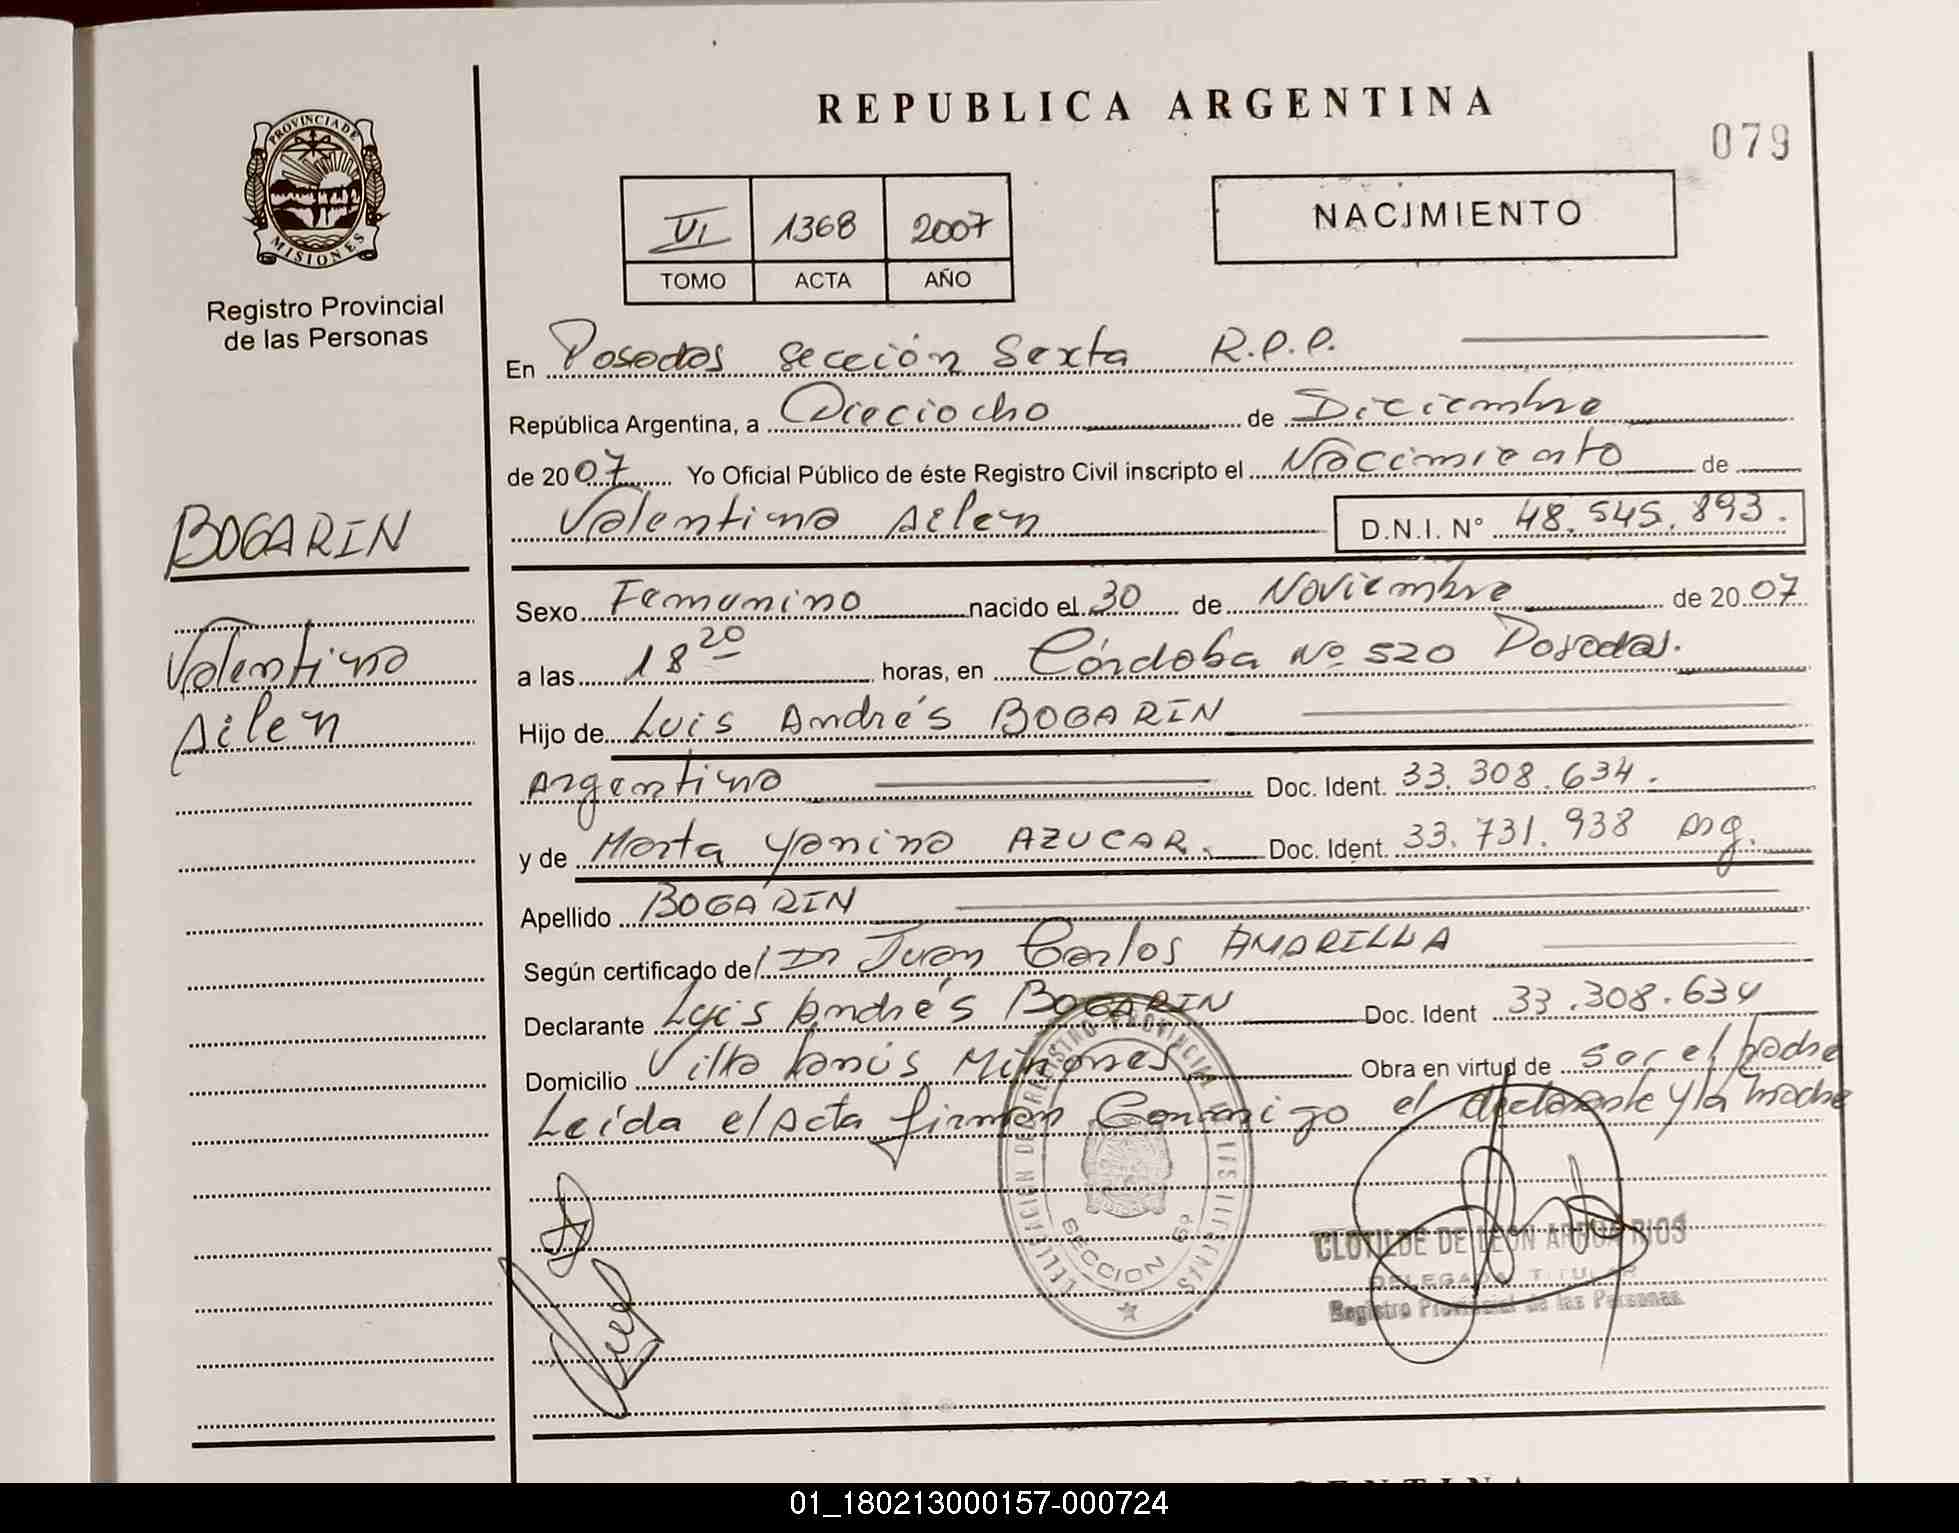 REPUBLICA ARGENTINA
079
PROVINCIA DE
MISIONES
Registro Provincial
de las Personas
VI 1368 2007
TOMO ACTA AÑO
NACIMIENTO
En Posadas sección Sexta R.P.P.
República Argentina, a Dieciocho de Diciembre
de 2007 Yo Oficial Público de éste Registro Civil inscripto el Nacimiento de
Valentina Ailen D.N.I. N° 48.545.893.
BOGARIN
Valentina
Ailen
Sexo Femenino nacido el 30 de Noviembre de 2007
a las 18 20 horas, en Córdoba Nº 520 Posadas.
Hijo de Luis Andrés BOGARIN
Argentino Doc. Ident. 33.308.634.
y de Marta Yanina AZUCAR. Doc. Ident. 33.731.938 Arg.
Apellido BOGARIN
Según certificado del Dr Juan Carlos AMARILLA
Declarante Luis Andrés BOGARIN Doc. Ident 33.308.634
Domicilio Villa Lanús Misiones Obra en virtud de ser el padre
Leída el Acta firman Conmigo el declarante y la madre
REGISTRO PROVINCIAL DE LAS PERSONAS
SECCION 6ª
CLOTILDE DE LEON RIOS
DELEGADA TITULAR
Registro Provincial de las Personas
ARGENTINA
01_180213000157-000724